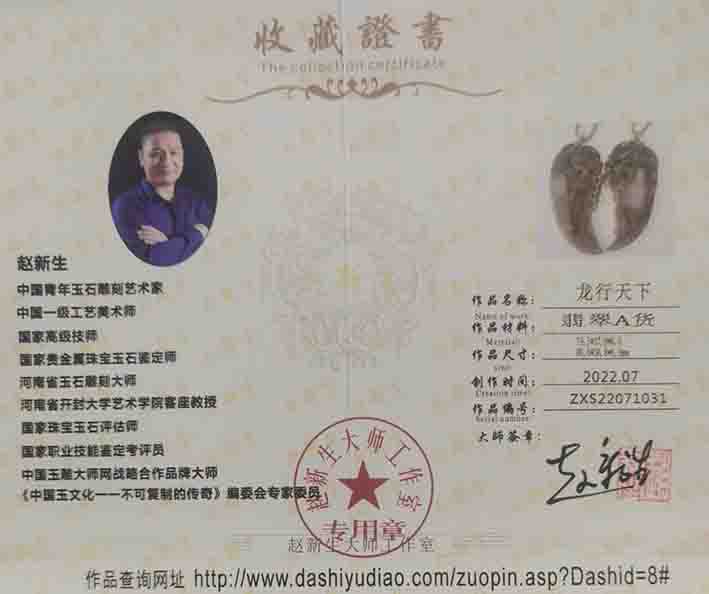 收藏證書
The collection certificate
赵新生
中国青年玉石雕刻艺术家
中国一级工艺美术师
国家高级技师
国家贵金属珠宝玉石鉴定师
河南省玉石雕刻大师
河南省开封大学艺术学院客座教授
国家珠宝玉石评估师
国家职业技能鉴定考评员
中国玉雕大师网战略合作品牌大师
《中国玉文化——不可复制的传奇》编委会专家委员
作品名称： 龙行天下
Name of work:
作品材料： 翡翠A货
Material:
作品尺寸：
size:
创作时间： 2022.07
Creation time:
作品编号： ZXS22071031
Serial number:
大师签章：
赵新生
赵新生大师工作室
专用章
赵新生大师工作室
作品查询网址 http://www.dashiyudiao.com/zuopin.asp?Dashid=8#